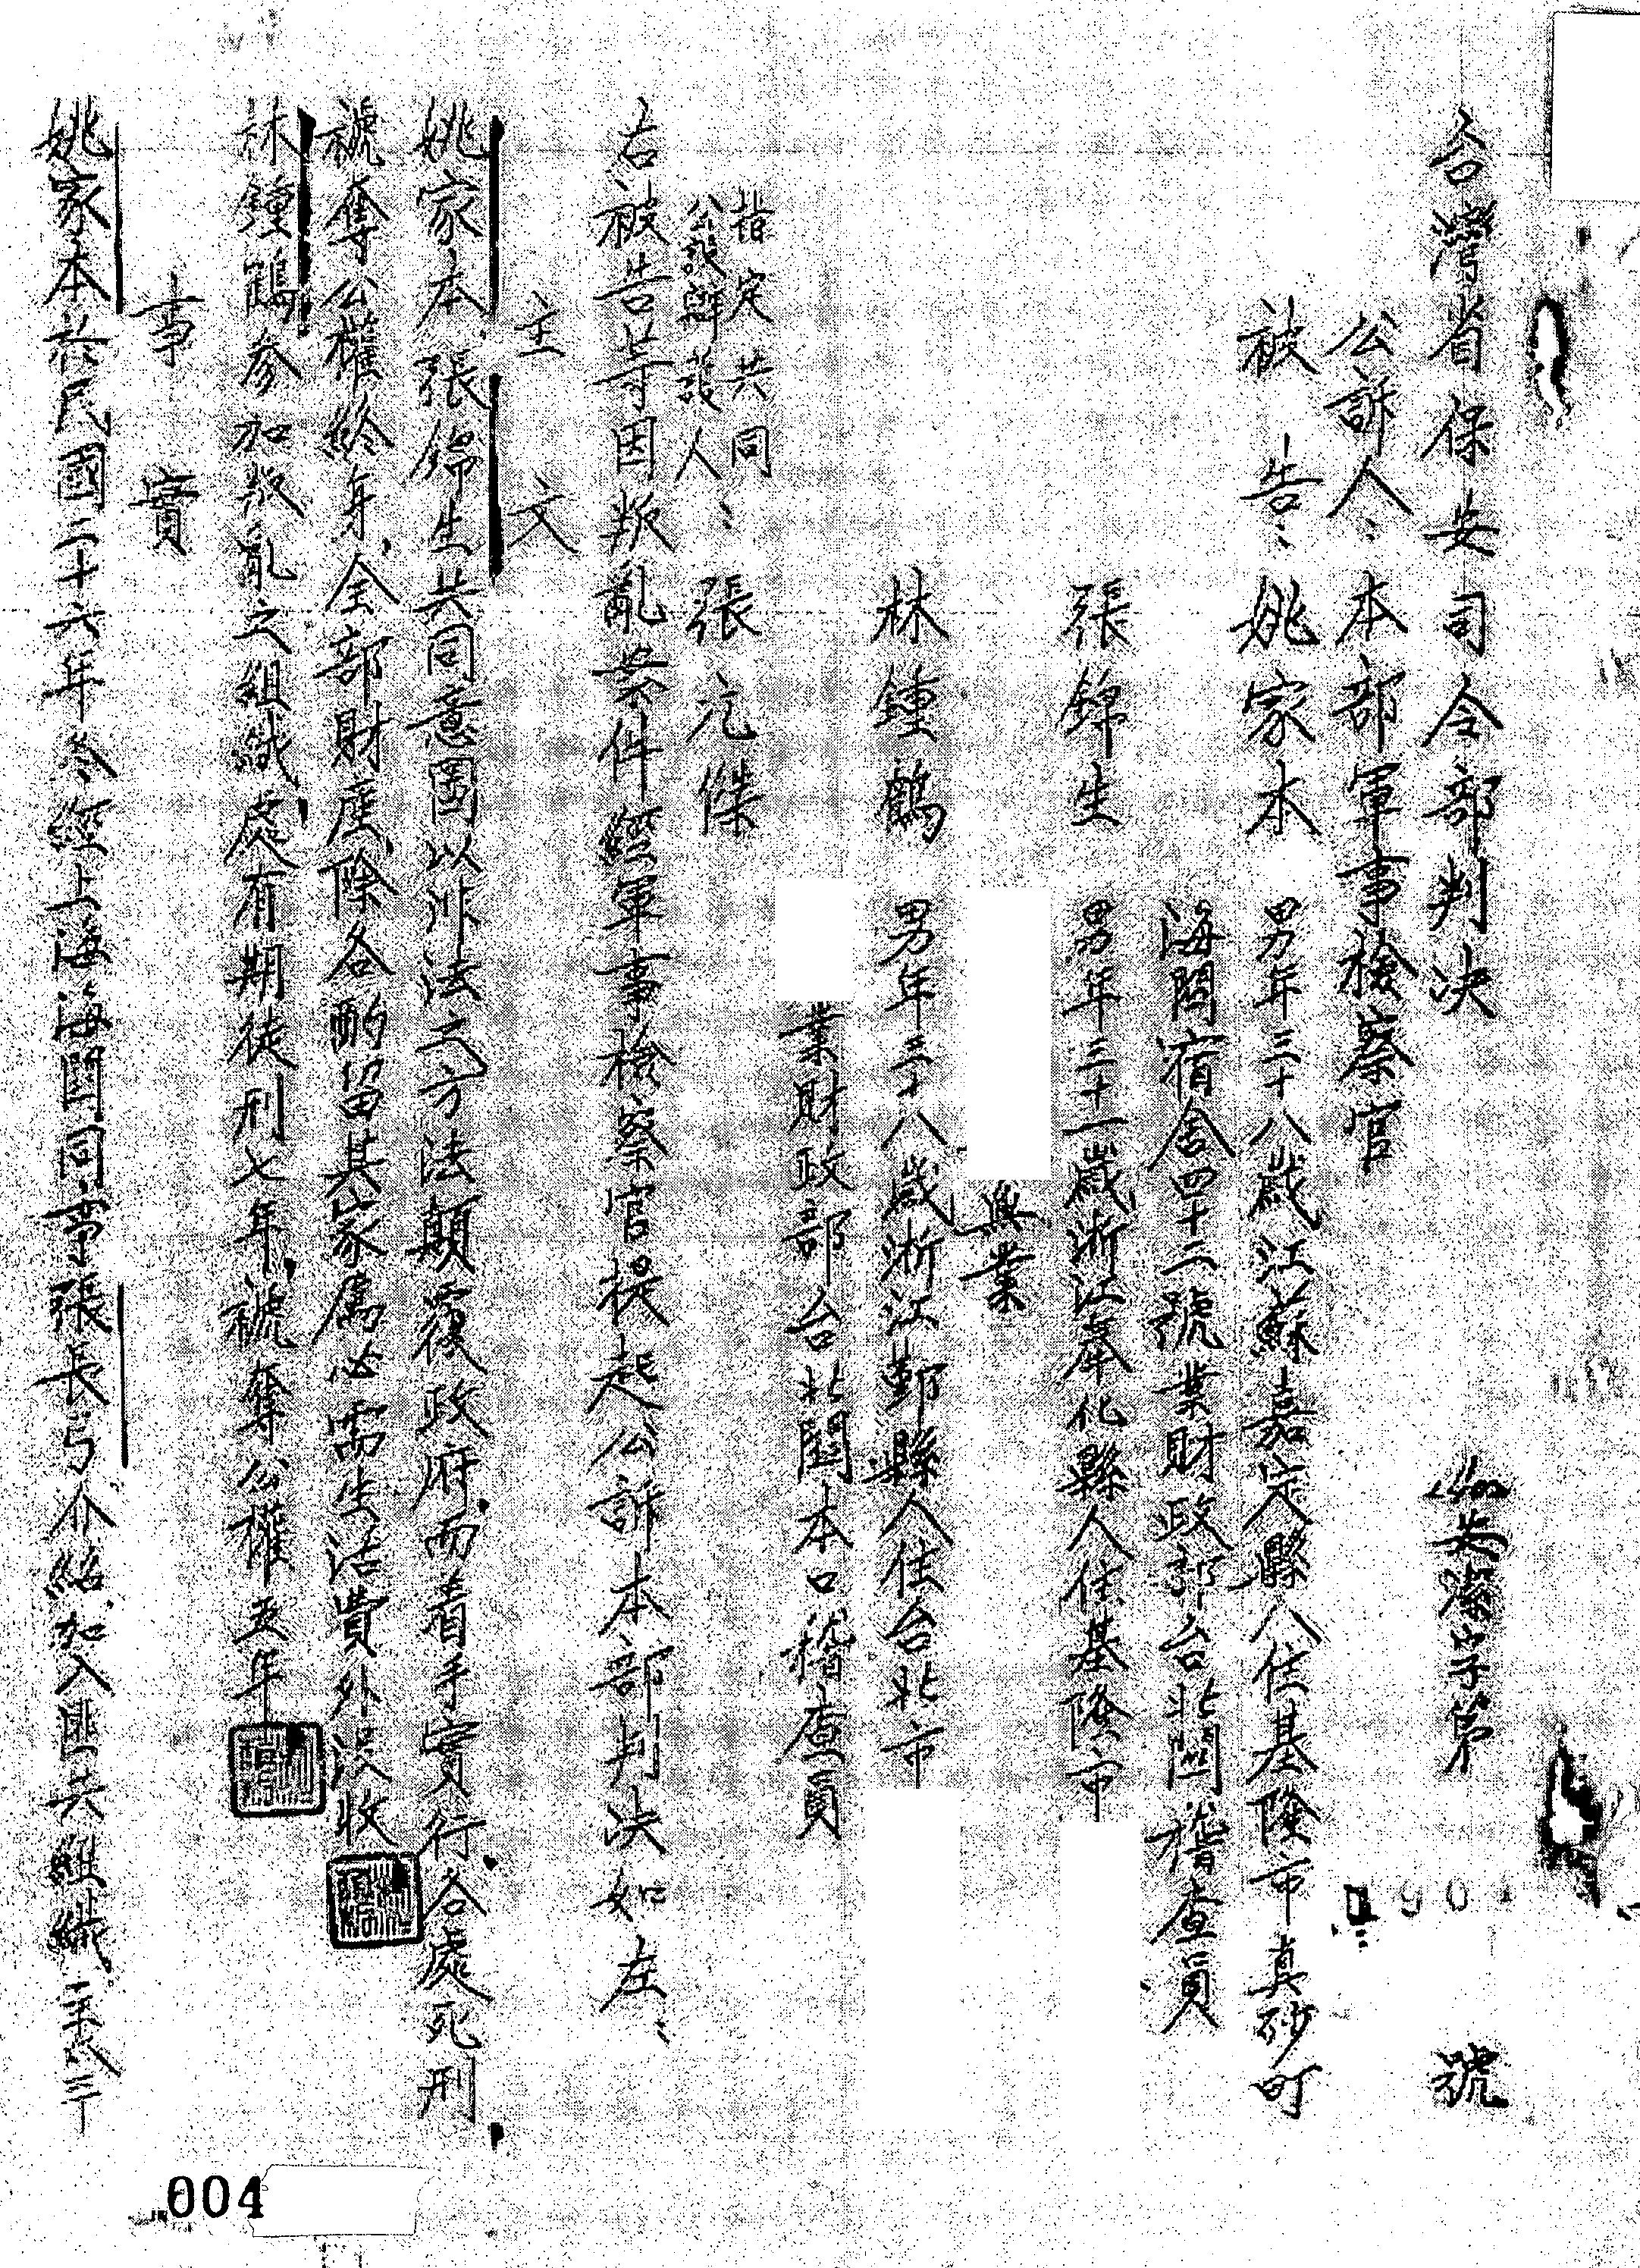 台灣省保安司令部判決
安潔字第 號
公訴人：本部軍事檢察官
被告：姚家本 男年三十八歲江蘇嘉定縣人住基隆市真砂町
海關宿舍四十二號業財政部台北關稽查員
張錦生 男年三十一歲浙江奉化縣人住基隆市
無業
林鍾鶴 男年三十八歲浙江鄞縣人住台北市
業財政部台北關本口稽查員
指定共同
公設辯護人：張元傑
右被告等因叛亂案件經軍事檢察官提起公訴本部判決如左：
主文
姚家本、張錦生共同意圖以非法之方法顛覆政府，而着手實行，各處死刑，
褫奪公權終身，全部財產除各酌留其家屬必需生活費外沒收
林鍾鶴參加叛亂之組織，處有期徒刑七年，褫奪公權五年
事實
姚家本於民國二十六年冬經上海海關同事張長弓介紹加入匪共組織，至民三十
0901
004